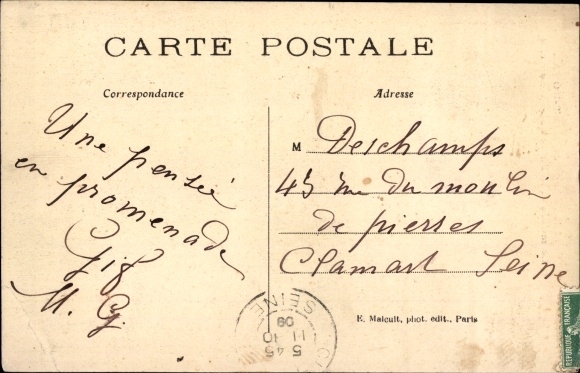 CARTE POSTALE
Correspondance
Une pensée
en promenade
M. G.
Adresse
M Deschamps
45 rue du moulin
de pierres
Clamart Seine
E. Malcuit, phot. edit., Paris
SEINE
5 45
11 -10
09
REPUBLIQUE FRANÇAISE